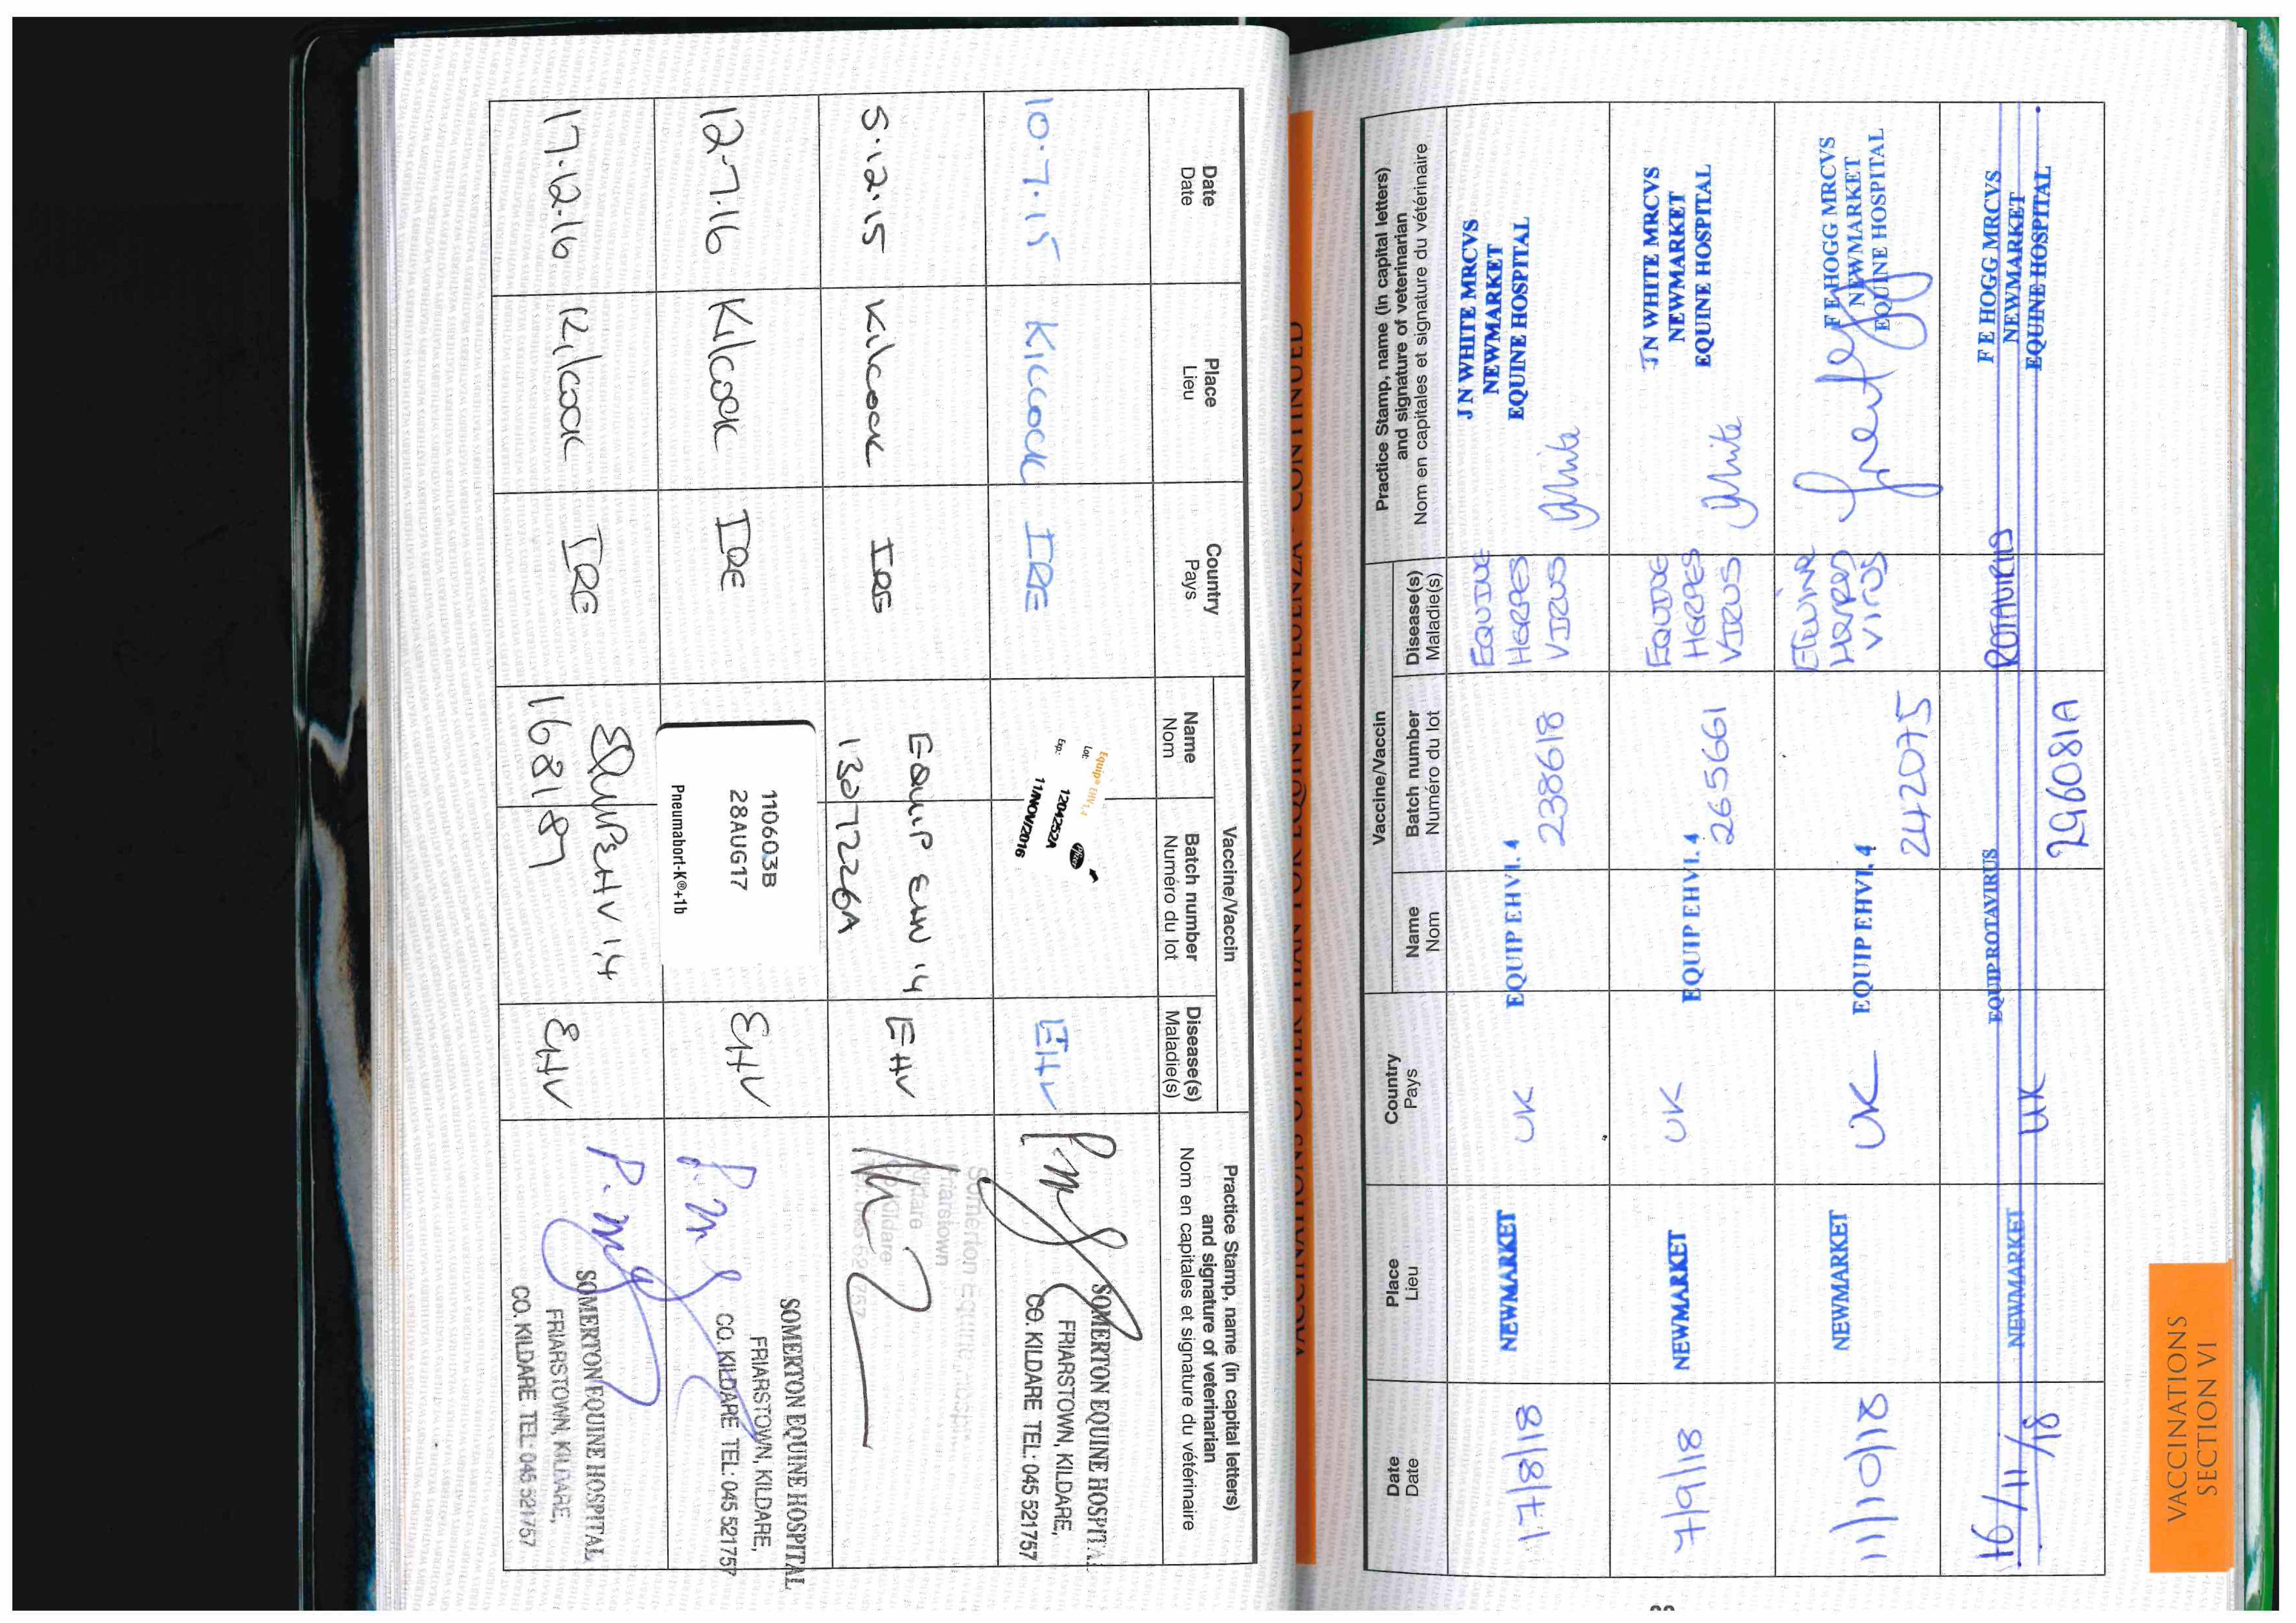 Date
Date
Place
Lieu
Country
Pays
Vaccine/Vaccin
Name
Nom
Batch number
Numéro du lot
Disease(s)
Maladie(s)
Practice Stamp, name (in capital letters)
and signature of veterinarian
Nom en capitales et signature du vétérinaire
10.7.15
KILCOCK
IRE
Equip® EHV1,4
Lot: 1204252A
Exp.: 11/NOV/2016
Pfizer
EHV
SOMERTON EQUINE HOSPITA
FRIARSTOWN, KILDARE,
CO. KILDARE TEL: 045 521757
5.12.15
Kilcock
IRE
EQUIP EHV 1,4
1307226A
EHV
Somerton Equine Hosp
Friarstown
Kildare
Co. Kildare
12.7.16
Kilcock
IRE
110603B
28AUG17
Pneumabort-K®+1b
EHV
SOMERTON EQUINE HOSPITAL
FRIARSTOWN, KILDARE,
CO. KILDARE TEL: 045 521757
17.12.16
Kilcock
IRE
EQUIP EHV 1,4
168187
EHV
SOMERTON EQUINE HOSPITAL
FRIARSTOWN, KILDARE,
CO. KILDARE TEL: 045 521757
VACCINATIONS OTHER THAN FOR EQUINE INFLUENZA - CONTINUED
SECTION VI
VACCINATIONS
Date
Date
Place
Lieu
Country
Pays
Vaccine/Vaccin
Name
Nom
Batch number
Numéro du lot
Disease(s)
Maladie(s)
Practice Stamp, name (in capital letters)
and signature of veterinarian
Nom en capitales et signature du vétérinaire
17/8/18
NEWMARKET
UK
EQUIP EHV1. 4
238618
EQUINE
HERPES
VIRUS
J N WHITE MRCVS
NEWMARKET
EQUINE HOSPITAL
JWhite
7/9/18
NEWMARKET
UK
EQUIP EHV1. 4
265661
EQUINE
HERPES
VIRUS
J N WHITE MRCVS
NEWMARKET
EQUINE HOSPITAL
JWhite
11/10/18
NEWMARKET
UK
EQUIP EHV1. 4
242075
EQUINE
HERPES
VIRUS
F E HOGG MRCVS
NEWMARKET
EQUINE HOSPITAL
16/11/18
NEWMARKET
UK
EQUIP ROTAVIRUS
296081A
ROTAVIRUS
F E HOGG MRCVS
NEWMARKET
EQUINE HOSPITAL